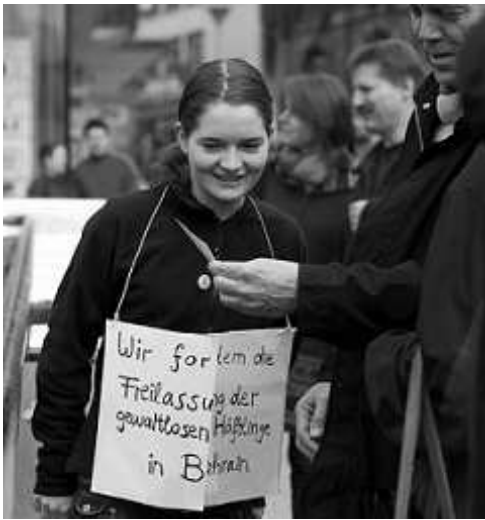 Wir fordern die
Freilassung der
gewaltlosen Häftlinge
in Bahrain